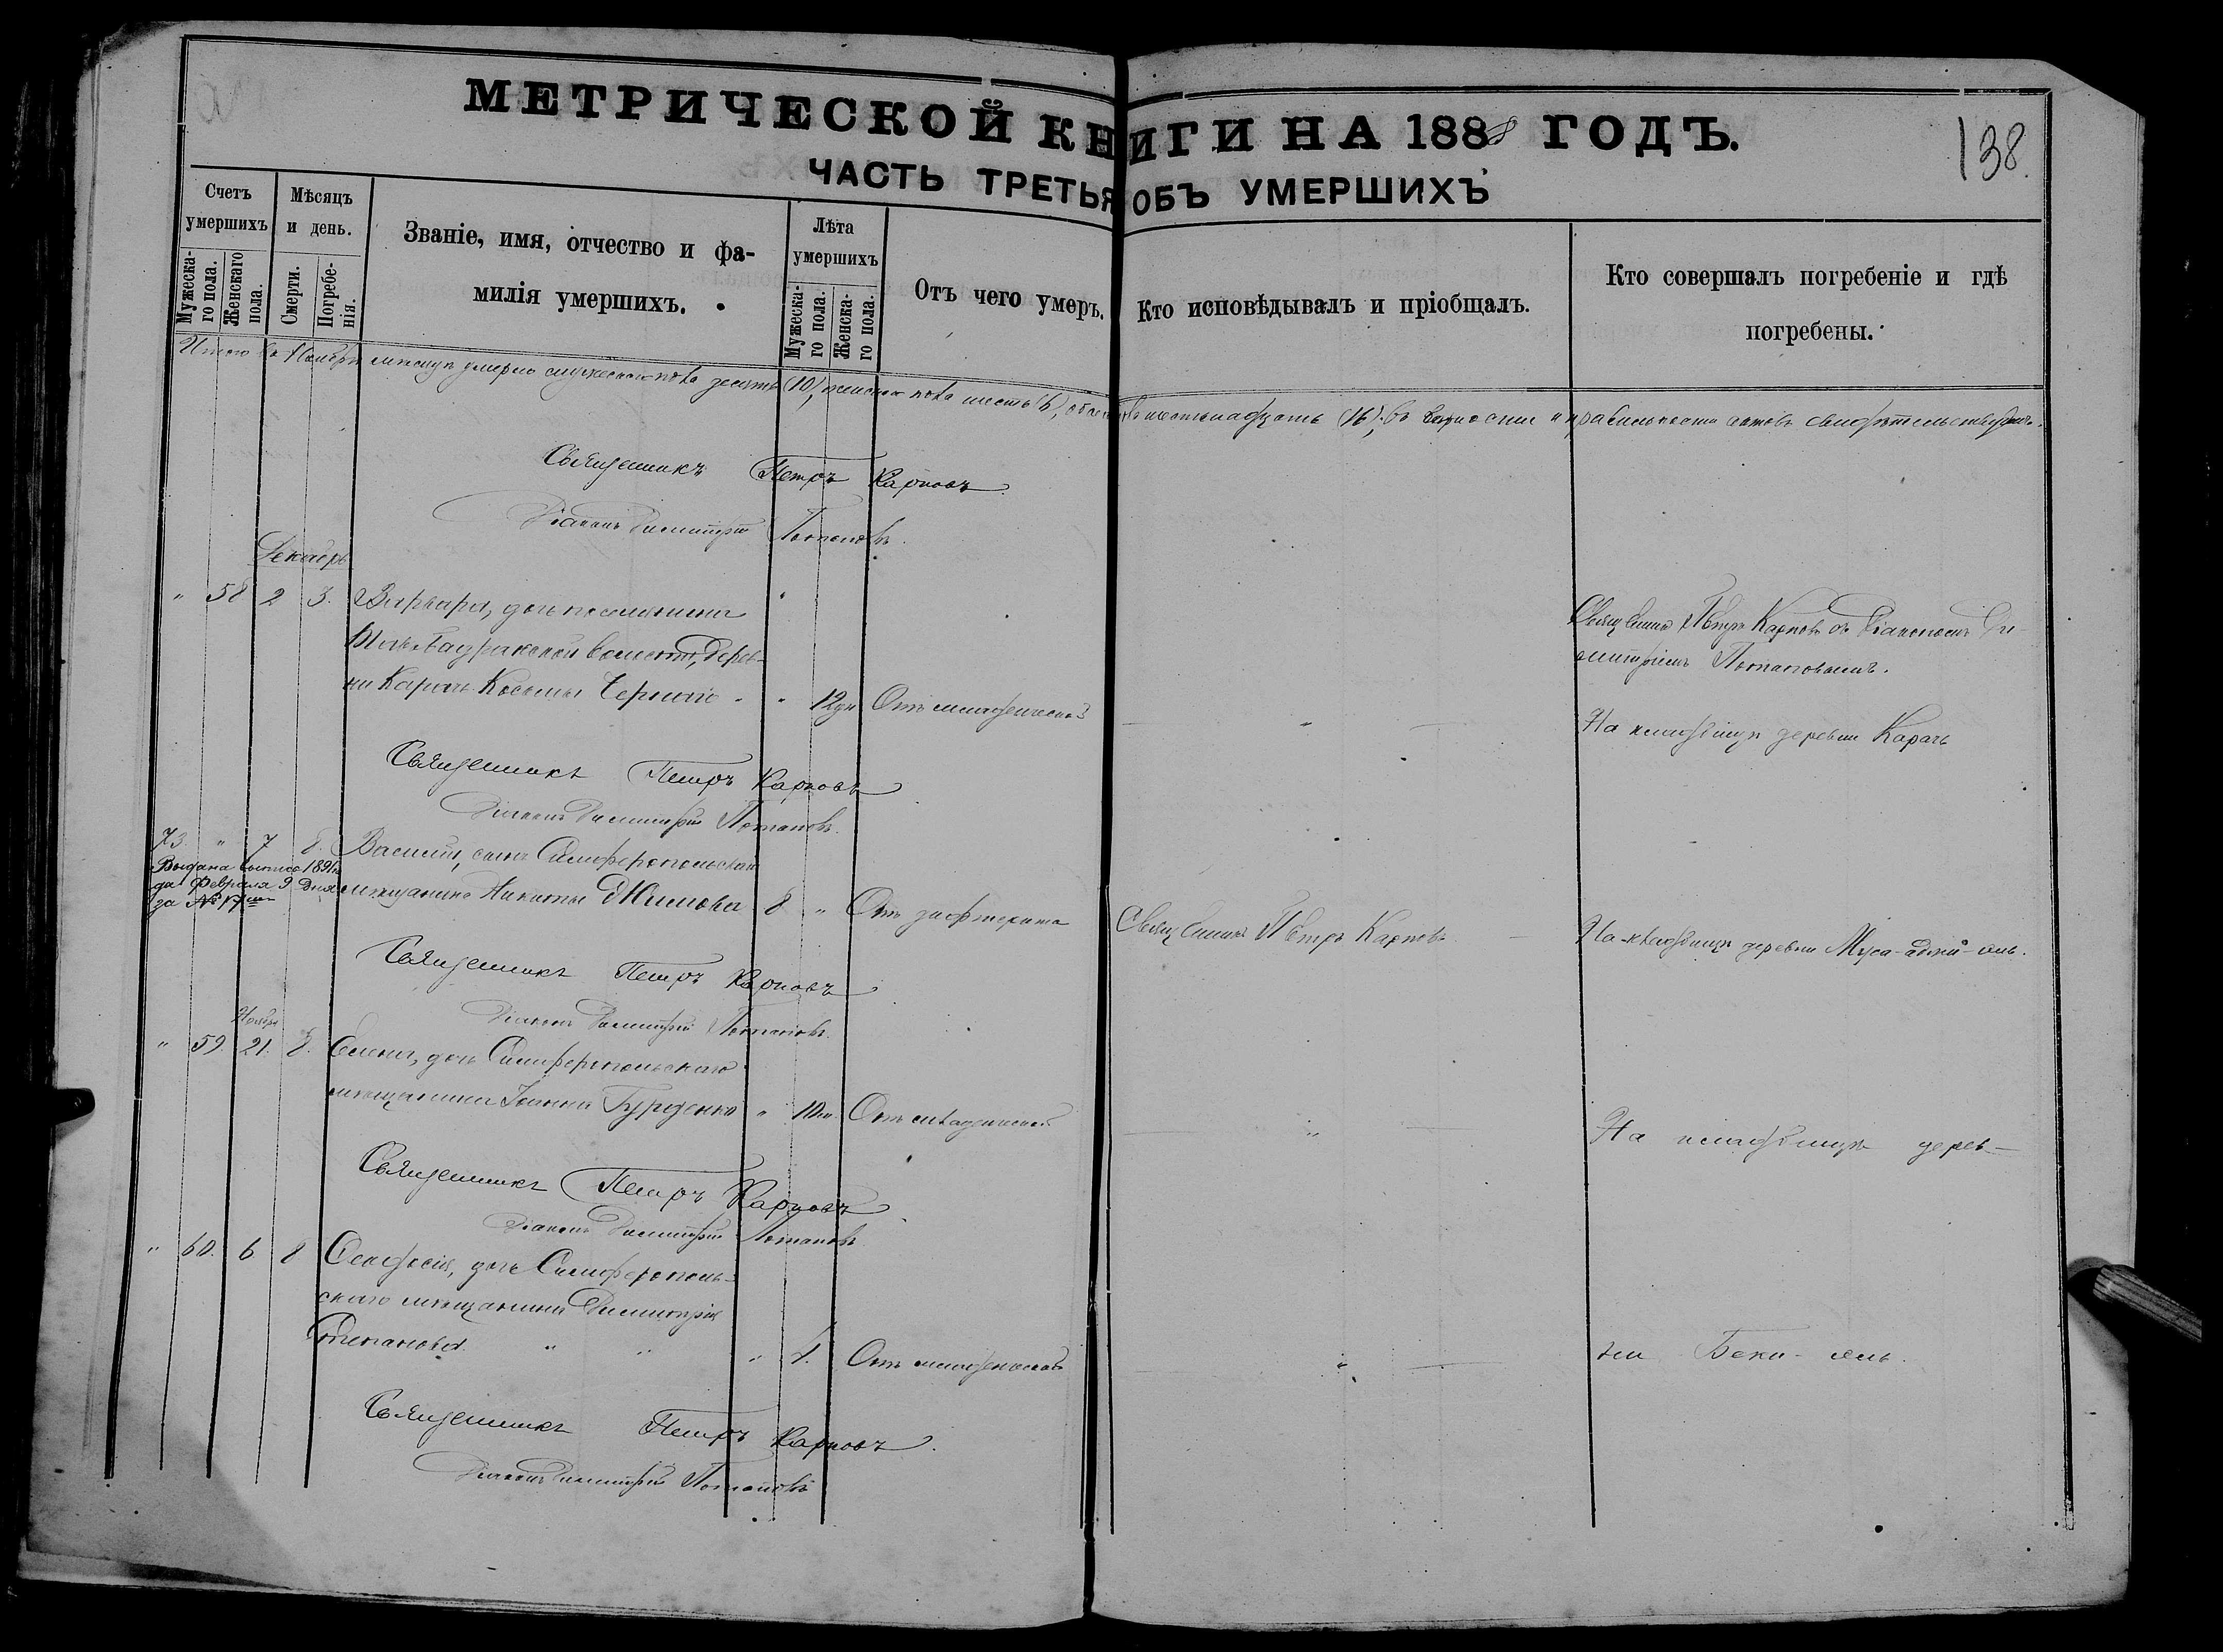 МЕТРИЧЕСКОЙ КНИГИ НА 1888 ГОДЪ.
138.
ЧАСТЬ ТРЕТЬЯ ОБЪ УМЕРШИХЪ
Счетъ умершихъ
Мужеска-го пола.
Женскаго пола.
Мѣсяцъ и день.
Смерти.
Погребе-нія.
Званіе, имя, отчество и фа-
милія умершихъ.
Лѣта умершихъ
Мужеска-го пола.
Женска-го пола.
Отъ чего умеръ.
Кто исповѣдывалъ и пріобщалъ.
Кто совершалъ погребеніе и гдѣ
погребены.
Итого въ Ноябрѣ мѣсяцѣ умерло мужескаго пола десять (10), женскаго пола шесть (6), обоего шестьнадцать (16); въ вѣрности и правильности актовъ свидѣтельствуемъ.
Священникъ Петръ Карповъ
Діаконъ Димитрій Потаповъ.
Декабрь
" 58 2 3. Варвара, дочь поселянина
волости, дерев-
ни Карачъ Космы Чернаго " 12 дн Отъ младенческой
Священникъ Петръ Карповъ съ Діакономъ Ди-
митріемъ Потаповымъ.
На кладбищѣ деревни Карачъ
Священникъ Петръ Карповъ
Діаконъ Димитрій Потаповъ.
73. " 7 8. Василій, сынъ Симферопольскаго
Выдана выпись 1891 го-
да Февраля 9 дня
за № 17
мѣщанина Никиты 8 " Отъ дифтерита
Священникъ Петръ Карповъ
На кладбищѣ деревни Муса-аджи-эль.
Священникъ Петръ Карповъ
Діаконъ Димитрій Потаповъ.
Ноябрь
" 59. 21. 8. Елена, дочь Симферопольскаго
мѣщанина Іоанна Гурденко " 10 м. Отъ младенческой
На кладбищѣ дерев-
Священникъ Петръ Карповъ
Діаконъ Димитрій Потаповъ
" 60. 6 8 Ѳеодосія, дочь Симферополь-
скаго мѣщанина Димитрія
Степанова " " " 1. Отъ младенческой
ни Беки-эль.
Священникъ Петръ Карповъ.
Діаконъ Димитрій Потаповъ